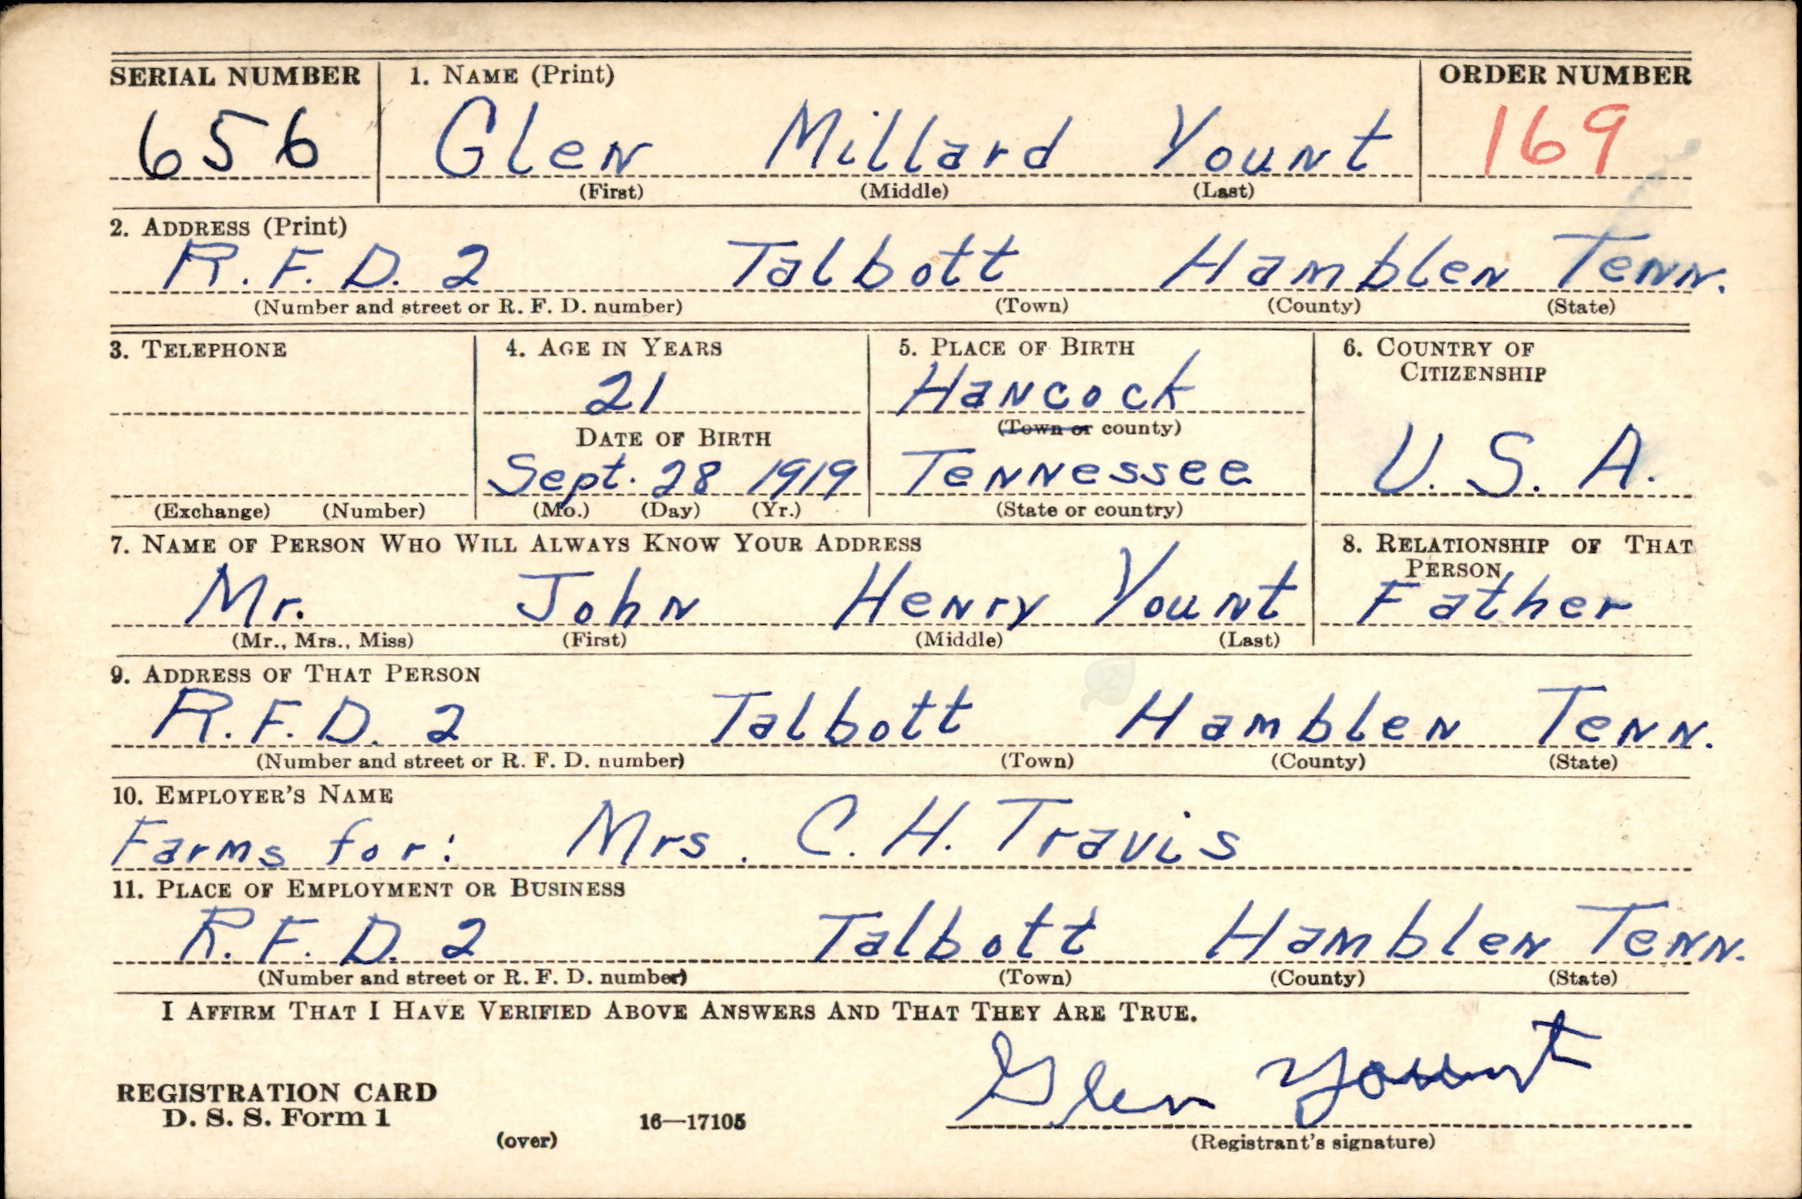 SERIAL NUMBER 1. NAME (Print) ORDER NUMBER
656 Glen Millard Yount 169
(First) (Middle) (Last)
2. ADDRESS (Print)
R.F.D. 2 Talbott Hamblen Tenn.
(Number and street or R. F. D. number) (Town) (County) (State)
3. TELEPHONE 4. AGE IN YEARS 5. PLACE OF BIRTH 6. COUNTRY OF
CITIZENSHIP
21 Hancock
DATE OF BIRTH (Town or county)
Sept. 28 1919 Tennessee U. S. A.
(Exchange) (Number) (Mo.) (Day) (Yr.) (State or country)
7. NAME OF PERSON WHO WILL ALWAYS KNOW YOUR ADDRESS 8. RELATIONSHIP OF THAT
PERSON
Mr. John Henry Yount Father
(Mr., Mrs., Miss) (First) (Middle) (Last)
9. ADDRESS OF THAT PERSON
R.F.D. 2 Talbott Hamblen Tenn.
(Number and street or R. F. D. number) (Town) (County) (State)
10. EMPLOYER'S NAME
Farms for: Mrs. C. H. Travis
11. PLACE OF EMPLOYMENT OR BUSINESS
R.F.D. 2 Talbott Hamblen Tenn.
(Number and street or R. F. D. number) (Town) (County) (State)
I AFFIRM THAT I HAVE VERIFIED ABOVE ANSWERS AND THAT THEY ARE TRUE.
REGISTRATION CARD Glen Yount
D. S. S. Form 1 16—17105
(over) (Registrant's signature)